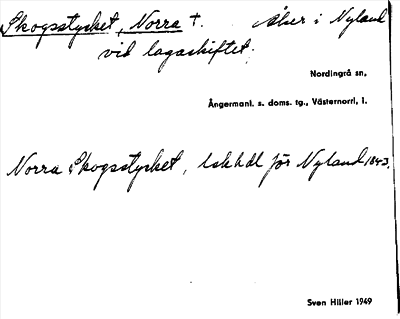 Skogsstycket, Norra †. Åker i Nyland
vid lagaskiftet.
Nordingrå sn,
Ångermanl. s. doms. tg., Västernorrl, l.
Norra Skogsstycket, lskhdl för Nyland 1843.
Sven Hiller 1949